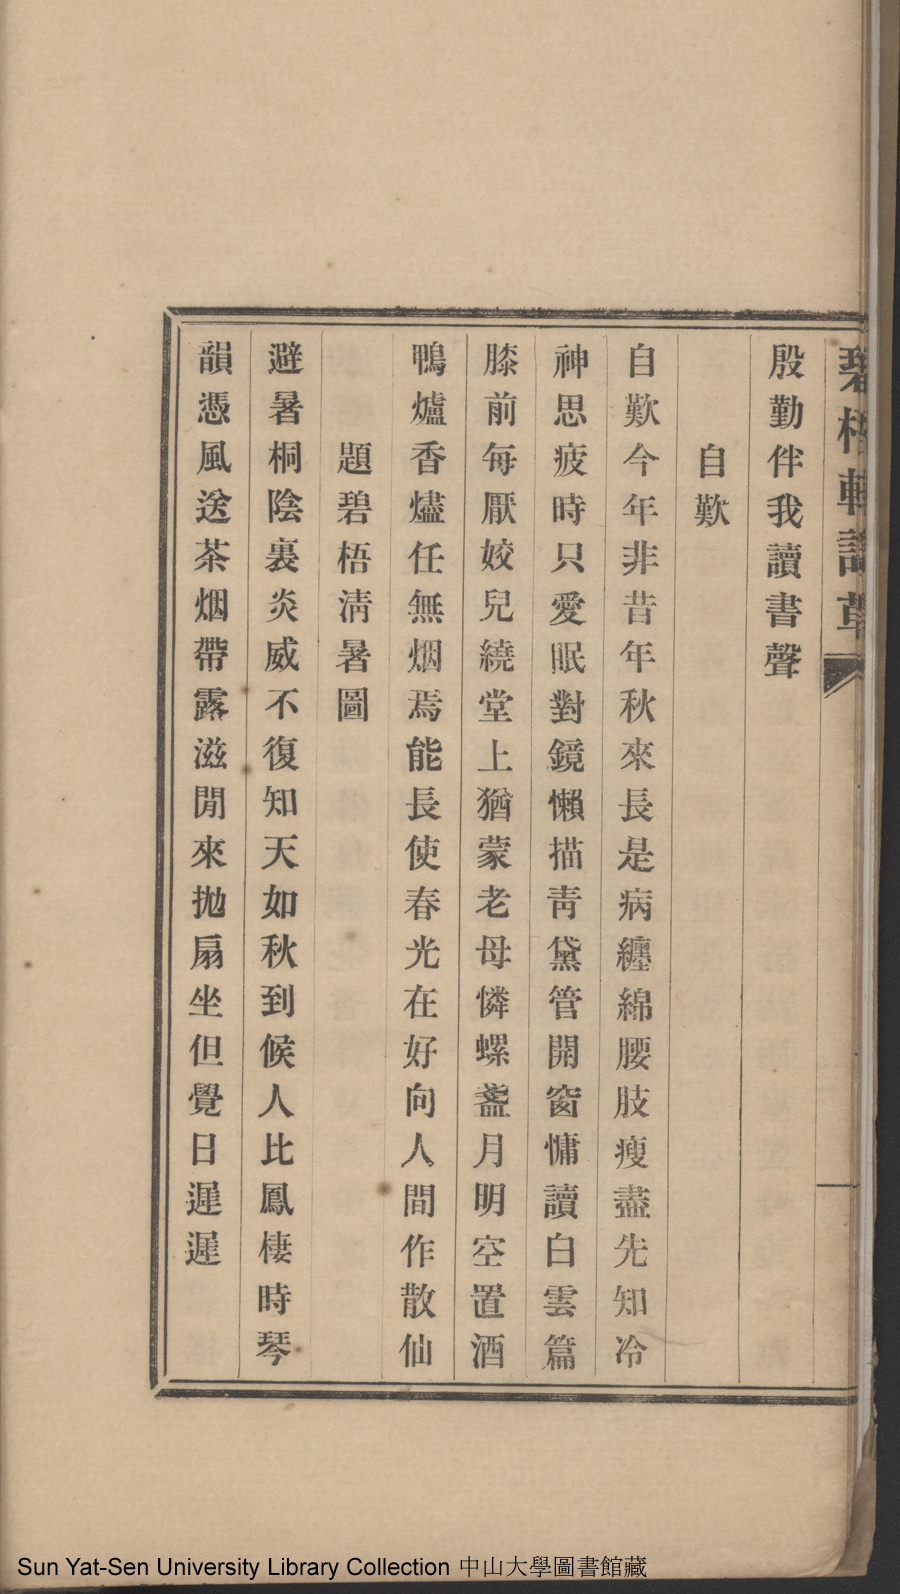 殷勤伴我讀書聲
自歎
自歎今年非昔年秋來長是病纏綿腰肢瘦盡先知冷
神思疲時只愛眠對鏡懶描靑黛管開窗慵讀白雲篇
膝前每厭姣兒繞堂上猶蒙老母憐螺盞月明空置酒
鴨爐香燼任無烟焉能長使春光在好向人間作散仙
題碧梧淸暑圖
避暑桐陰裏炎威不復知天如秋到候人比鳳棲時琴
韻憑風送茶烟帶露滋閒來拋扇坐但覺日遲遲
Sun Yat-Sen University Library Collection 中山大學圖書館藏